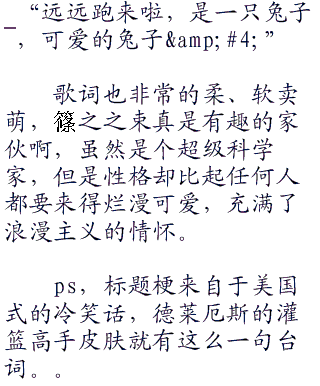 “远远跑来啦，是一只兔子
，可爱的兔子&amp;#4;”
歌词也非常的柔、软卖
萌，篠之之束真是有趣的家
伙啊，虽然是个超级科学
家，但是性格却比起任何人
都要来得烂漫可爱，充满了
浪漫主义的情怀。
ps，标题梗来自于美国
式的冷笑话，德莱厄斯的灌
篮高手皮肤就有这么一句台
词。。